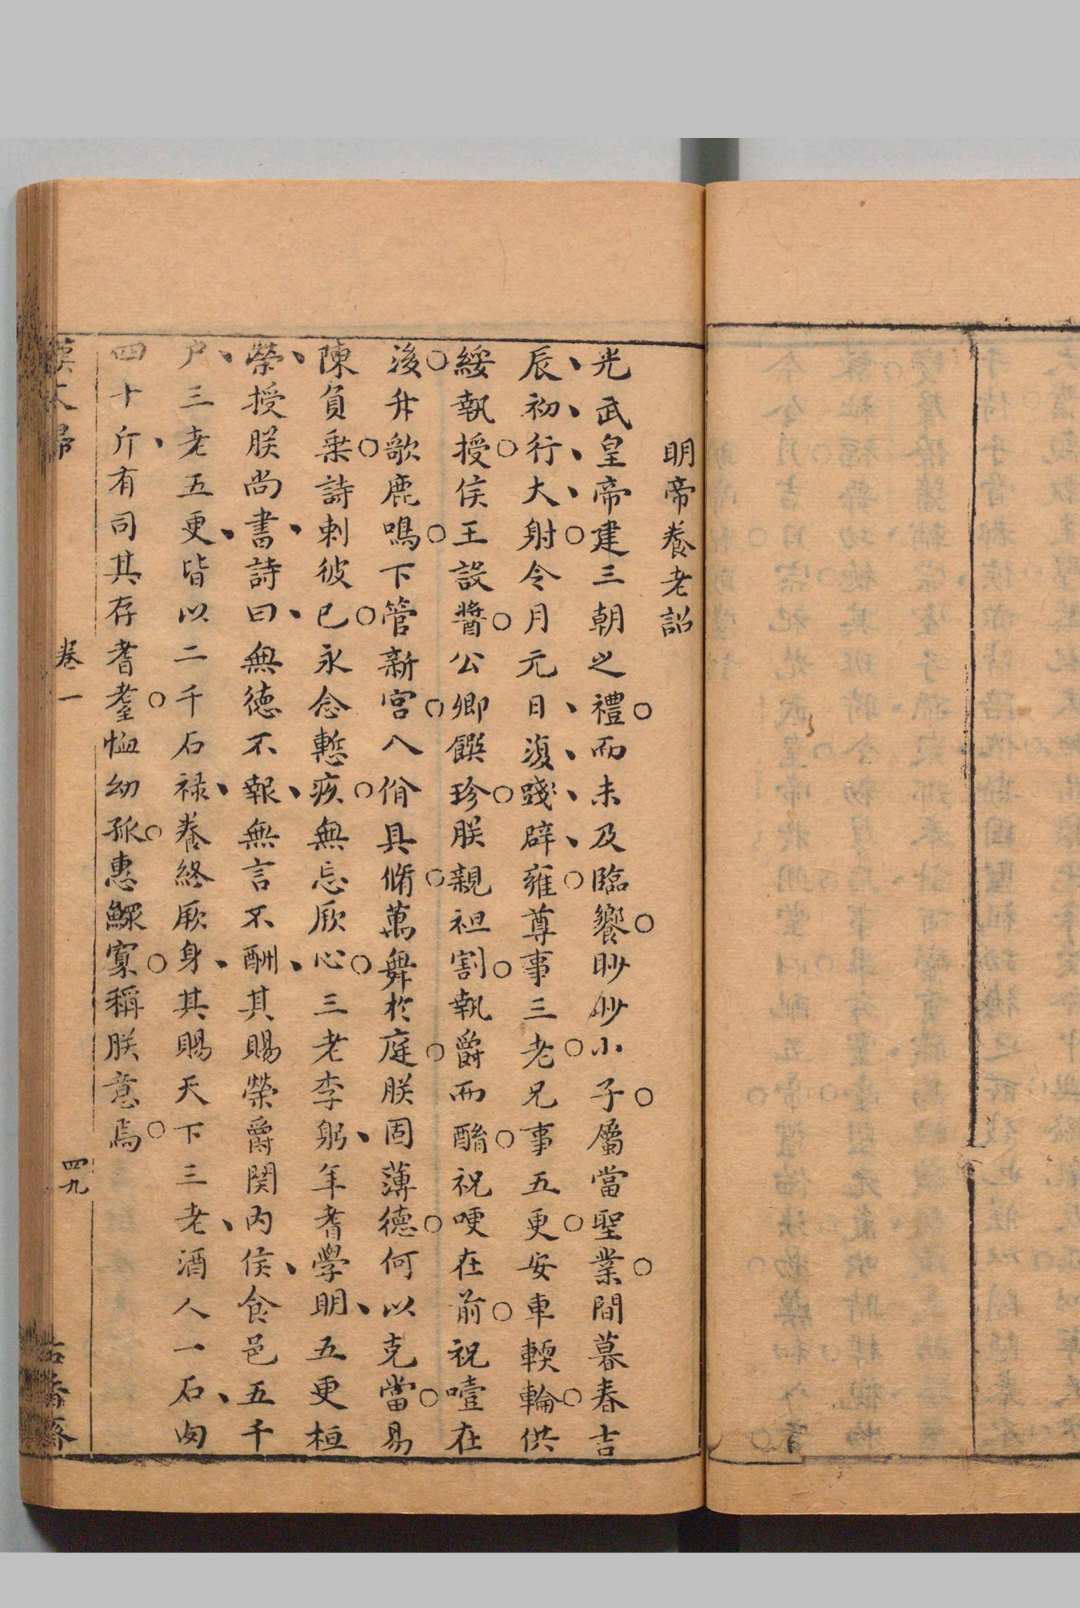 明帝養老詔
光武皇帝建三朝之禮而未及臨饗眇眇小子屬當聖業間暮春吉
辰初行大射令月元日復踐辟雍尊事三老兄事五更安車輭輪供
綏執授侯王設醬公卿饌珍朕親袒割執爵而酳祝哽在前祝噎在
後升歌鹿鳴下管新宮八佾具脩萬舞於庭朕固薄德何以克當易
陳負乗詩刺彼已永念慙疚無忘厥心三老李躬年耆學明五更桓
榮授朕尚書詩曰無德不報無言不酬其賜榮爵関內侯食邑五千
户三老五更皆以二千石禄養終厥身其賜天下三老酒人一石肉
四十斤有司其存耆耋恤幼孤惠鰥寡稱朕意焉
卷一
四九